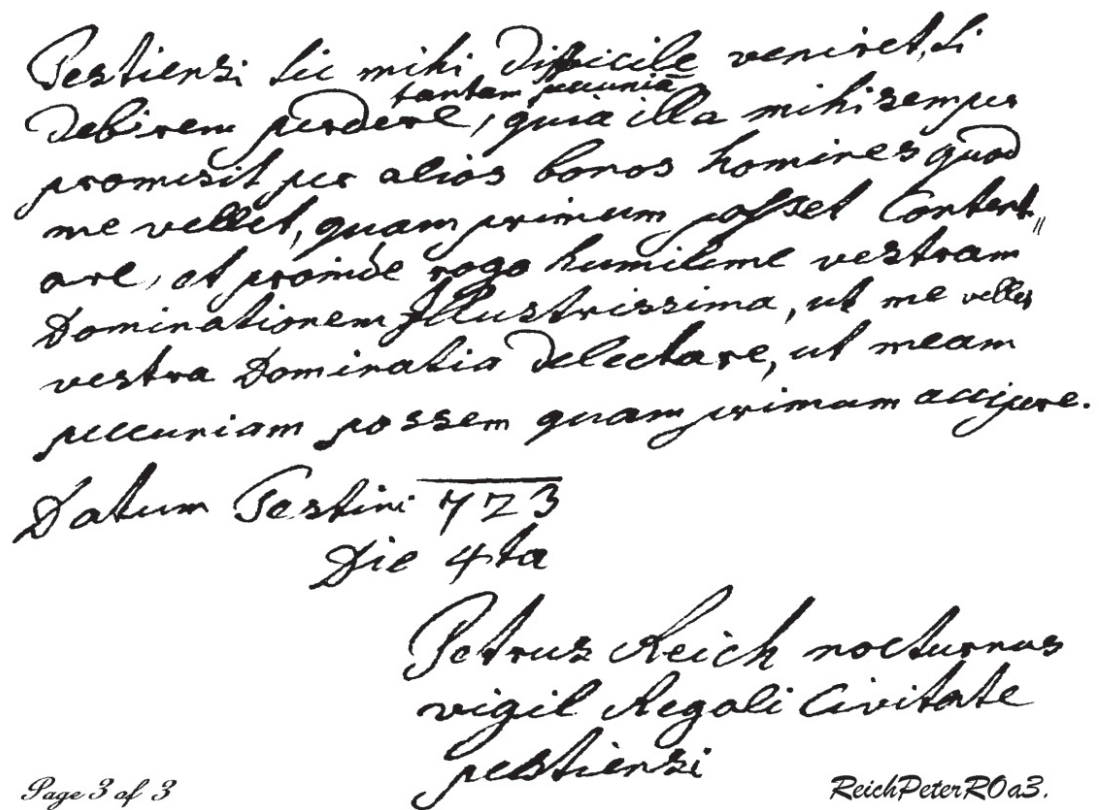 Pestiensi sic mihi difficile veniret, si
tantam pecuniā
debirem perdere, quia illa mihi semper
promisit per alios bonos homines quod
me vellet, quam primum posset Content„
are, et proinde rogo humilime vestram
Dominationem Illustrissima, ut me velles
vestra Dominatio delectare, ut meam
pecuniam possem quam primum accipere.
Datum Pestini 723
Die 4ta
Petrus Reich nocturnus
vigil Regali Civitate
pestiensi
Page 3 of 3
ReichPeterR0a3.